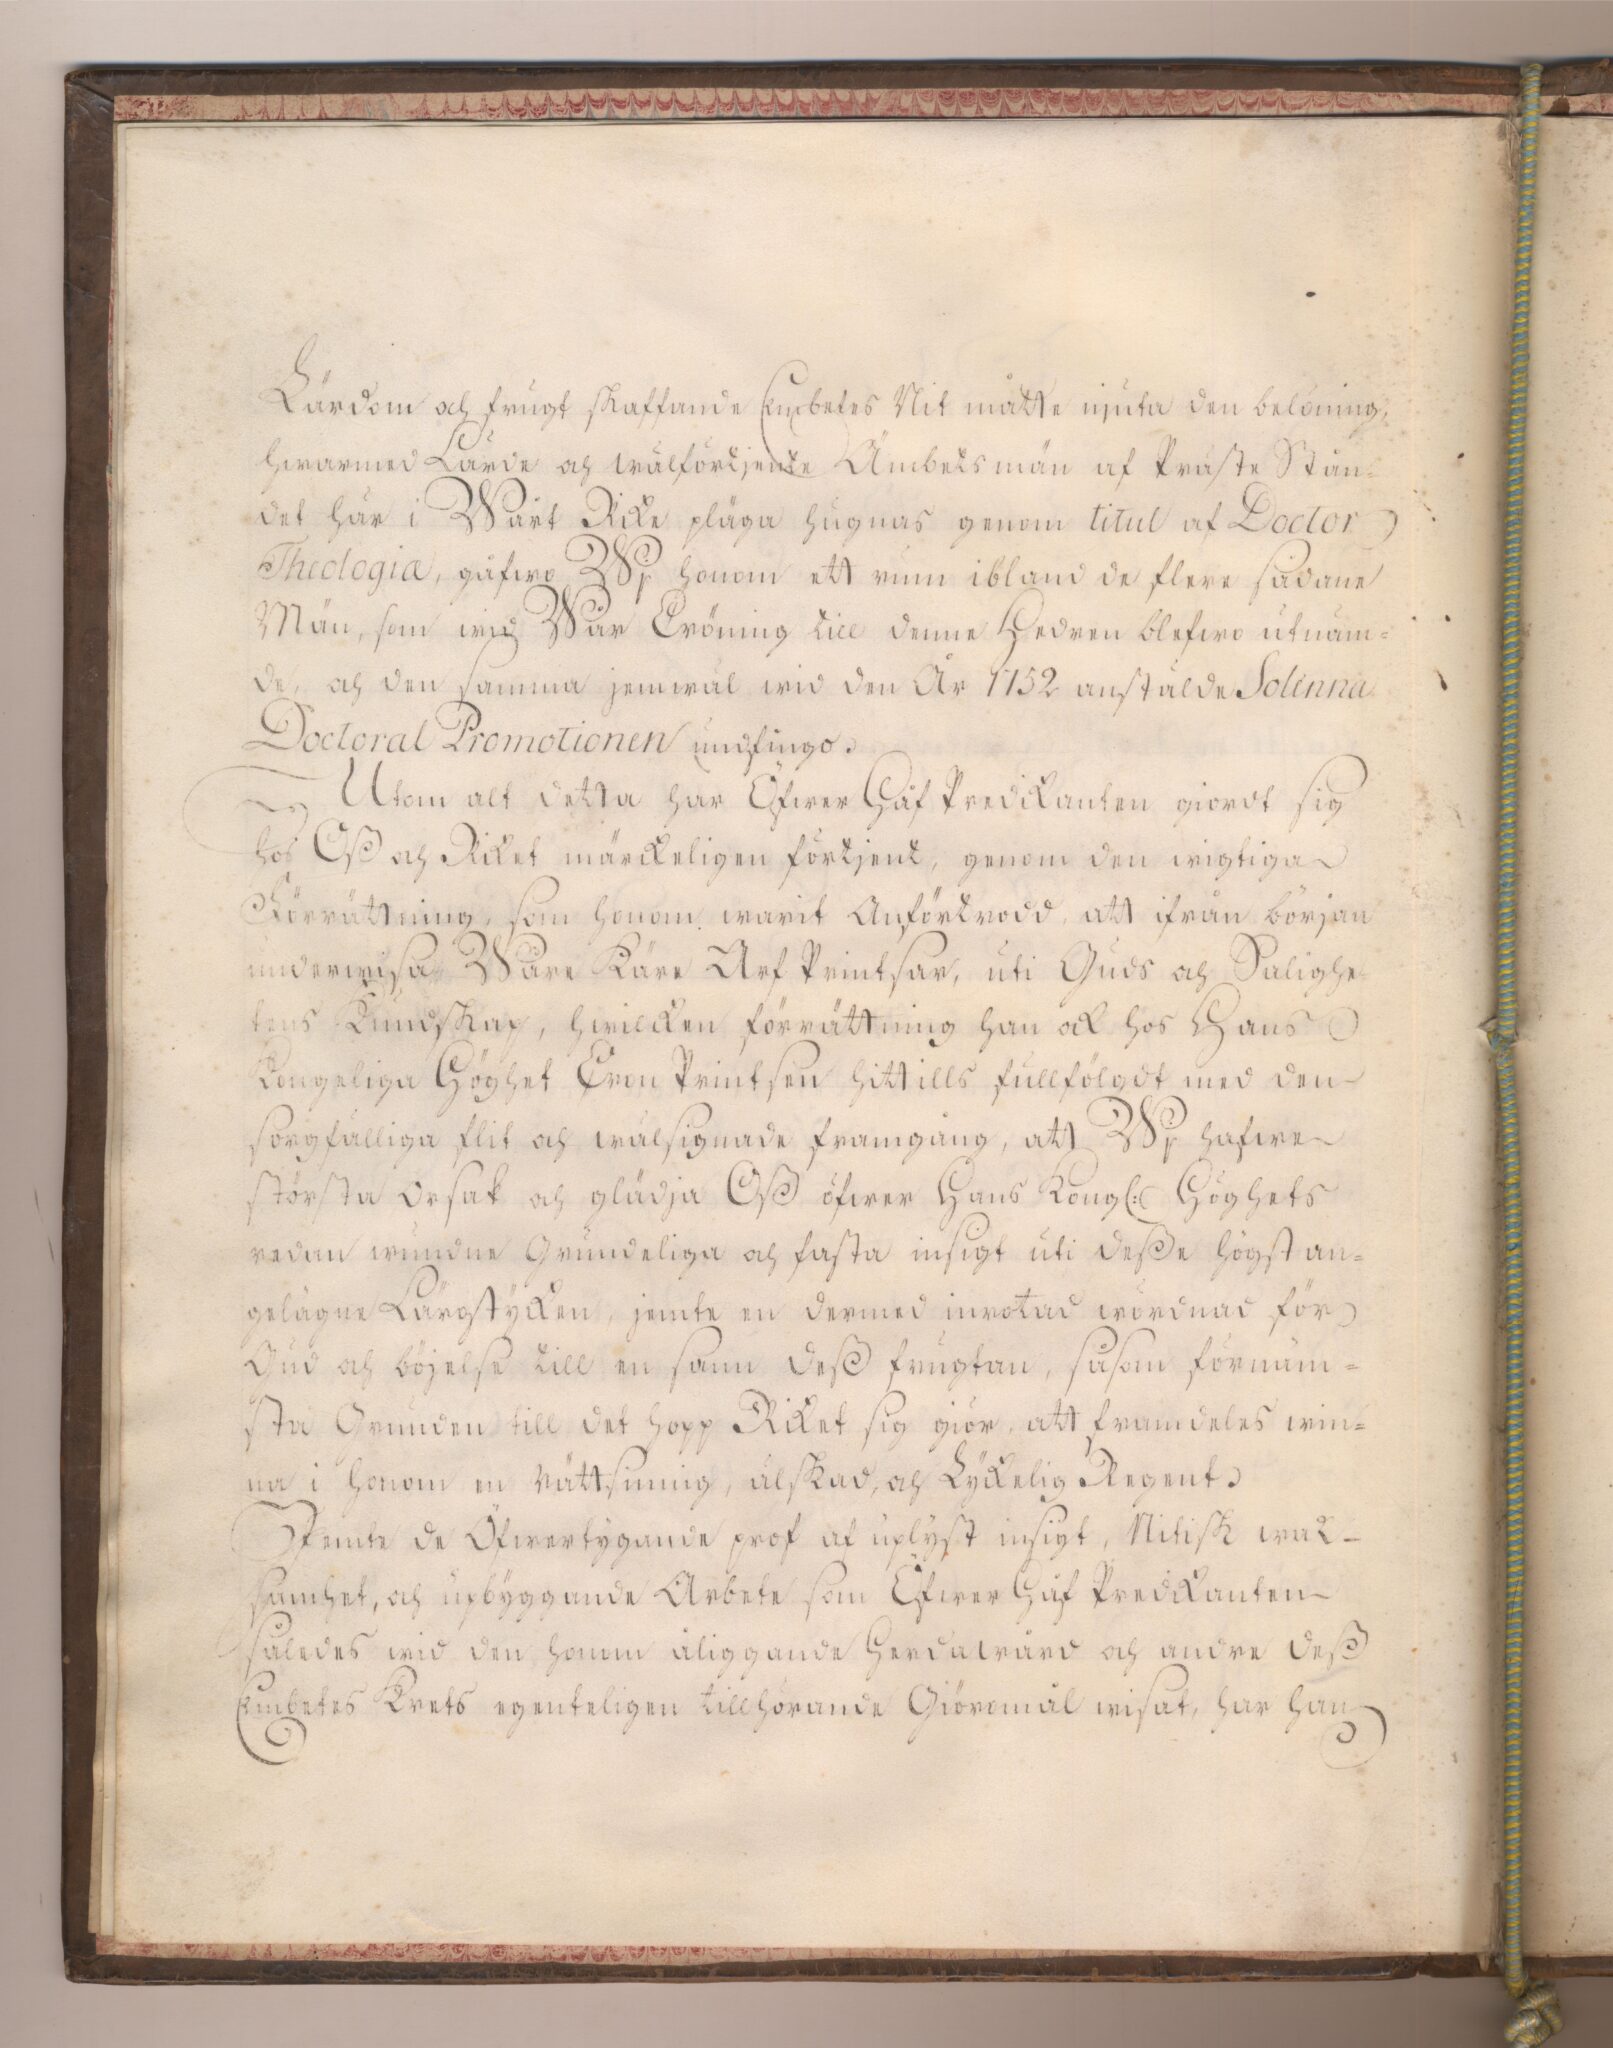 Lärdom och frugt skaffande Embetes Nit måtte njuta den belöning,
hwarmed Lärde och wälförtjente Ämbetsmän af Präste Stån-
det här i Wårt Rike pläga hugnas genom titul af Doctor
Theologiæ, gåfwo Wj honom ett rum ibland de flere sådane
Män, som wid Wår Cröning till denne Hedren blefwo utnäm=
de, och den samma jemwäl wid den År 1752 anstälde Solenna
Doctoral Promotionen undfingo.
Utom alt detta har Öfwer Håf Predikanten giordt sig
hos Oß och Riket märckeligen förtjent, genom den wigtiga
Förrättning, som honom warit Anförtrodd, att ifrån början
underwisa Wåre Käre Arf Printsar, uti Guds och Salighe
tens Kundskap, hwilcken förrättning han ock hos Hans
Kongeliga Höghet Cron Printsen hittills fullfölgdt med den
sorgfälliga flit och wälsignade framgång, att Wj hafwe
största Orsak och glädja Oß öfwer Hans Kongl: Höghets
redan wundne Grundeliga och fasta insigt uti deße högst an=
gelägne Lärostycken, jemte en dermed inrotad wördnad för
Gud och böjelse till en sann deß frugtan, såsom förnäm=
sta Grunden till det hopp Riket sig giör, att framdeles win=
na i honom en rättsinnig, älskad, och Lyckelig Regent.
Jemte de Öfwertygande prof af uplyst insigt, Nitisk wak-
samhet, och upbyggande Arbete som Öfwer Håf Predikanten
således wid den honom åliggande Herdawård och andre deß
Embetes Krets egenteligen tillhörande Giöromål wisat, har han